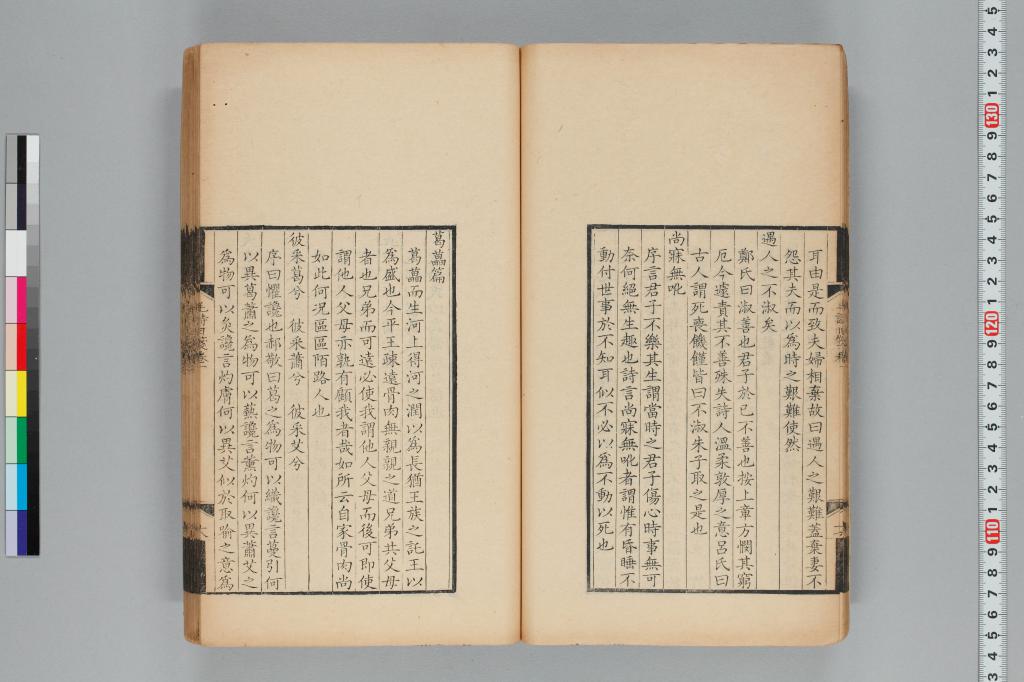 耳由是而致夫婦相棄故曰遇人之艱難蓋棄妻不
怨其夫而以為時之艱難使然
遇人之不淑矣
鄭氏曰淑善也君子於已不善也按上章方憫其窮
厄今遽責其不善殊失詩人溫柔敦厚之意呂氏曰
古人謂死喪饑饉皆曰不淑朱子取之是也
尚寐無吪
序言君子不樂其生謂當時之君子傷心時事無可
奈何絕無生趣也詩言尚寐無吪者謂惟有昏睡不
動付世事於不知耳似不必以為不動以死也
葛藟篇
葛藟而生河上得河之潤以為長猶王族之託王以
為盛也今平王疎遠骨肉無親親之道兄弟共父母
者也兄弟而可遠必使我謂他人父母而後可即使
謂他人父母亦孰有顧我者哉如所云自家骨肉尚
如此何況區區陌路人也
彼采葛兮 彼采蕭兮 彼采艾兮
序曰懼讒也郝敬曰葛之為物可以織讒言蔓引何
以異葛蕭之為物可以爇讒言薰灼何以異蕭艾之
為物可以灸讒言灼膚何以異艾似於取喻之意為